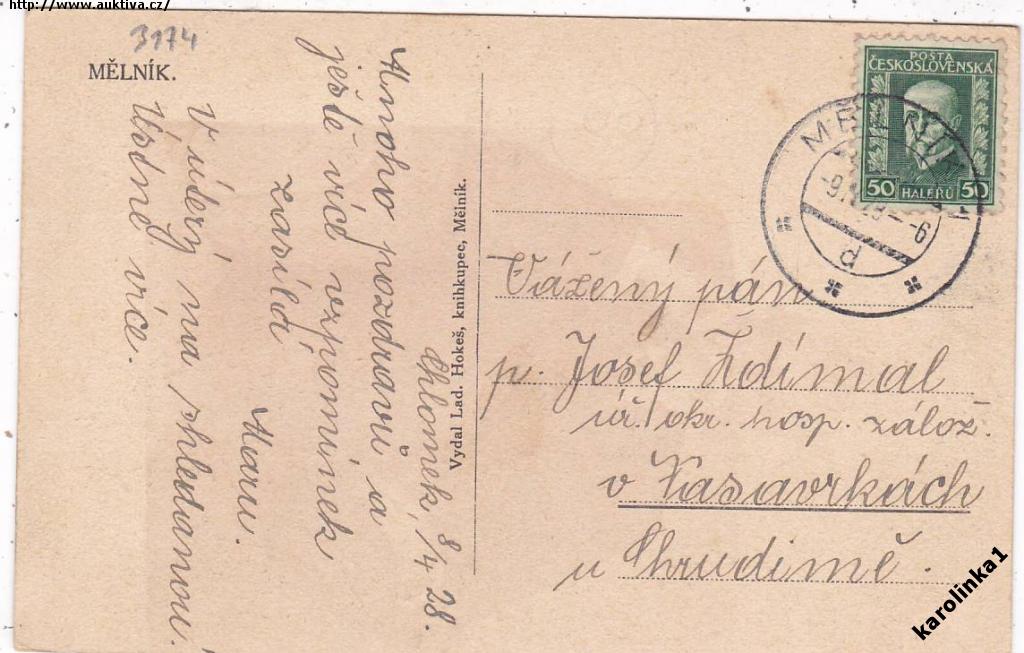 http://www.auktiva.cz/
3174
MĚLNÍK.
Chlomek, 8/4 28.
Mnoho pozdravů a
ještě více vzpomínek
zasílá
Maru.
V úterý na shledanou.
Ústně více.
Vydal Lad. Hokeš, knihkupec, Mělník.
POŠTA
ČESKOSLOVENSKÁ
50 HALÉŘŮ 50
MĚLNÍK 1
d
Vážený pán
p. Josef Zdímal
úř. okr. hosp. zálož.
v Nasavrkách
u Chrudimě.
karolinka1